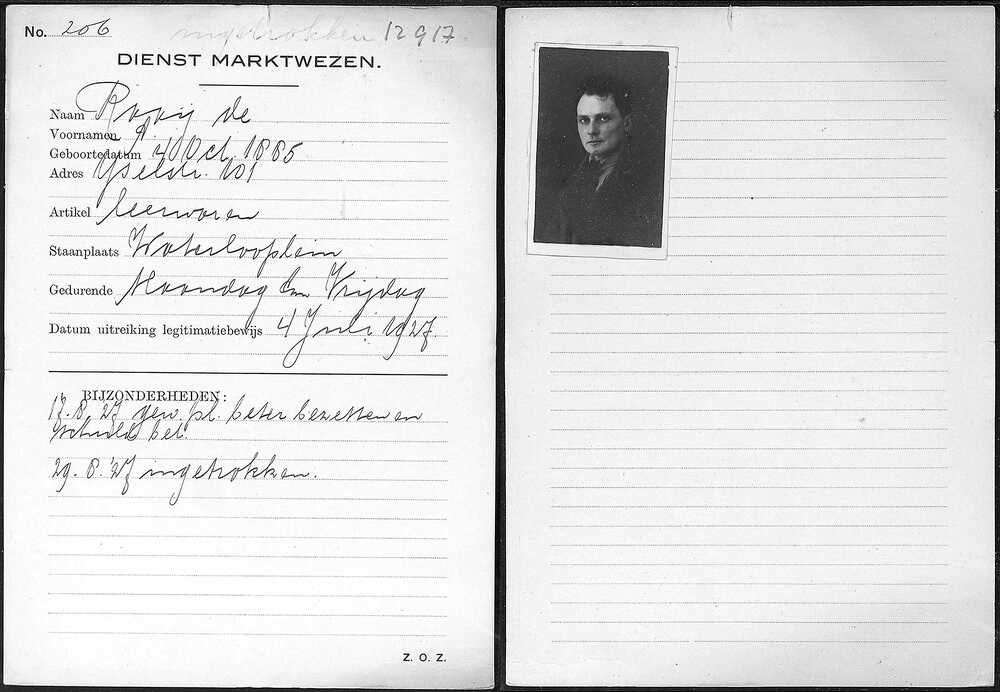 No. 206 ingetrokken 12 9 17
DIENST MARKTWEZEN.
Naam Rooij de
Voornamen
Geboortedatum Oct. 1885
Adres IJselstr. 101
Artikel Leerwaren
Staanplaats Waterlooplein
Gedurende Maandag t/m Vrijdag
Datum uitreiking legitimatiebewijs 4 Juli 1927.
BIJZONDERHEDEN:
8. 27 gew. pl. beter bezetten en
schuld bet.
29. 8. '27 ingetrokken.
Z. O. Z.